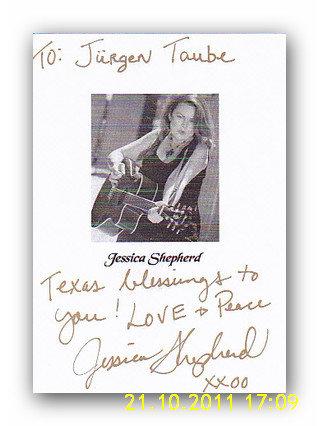 TO: Jürgen Taube
Jessica Shepherd
Texas blessings to
you! LOVE & Peace
Jessica Shepherd
XXOO
21.10.2011 17:09